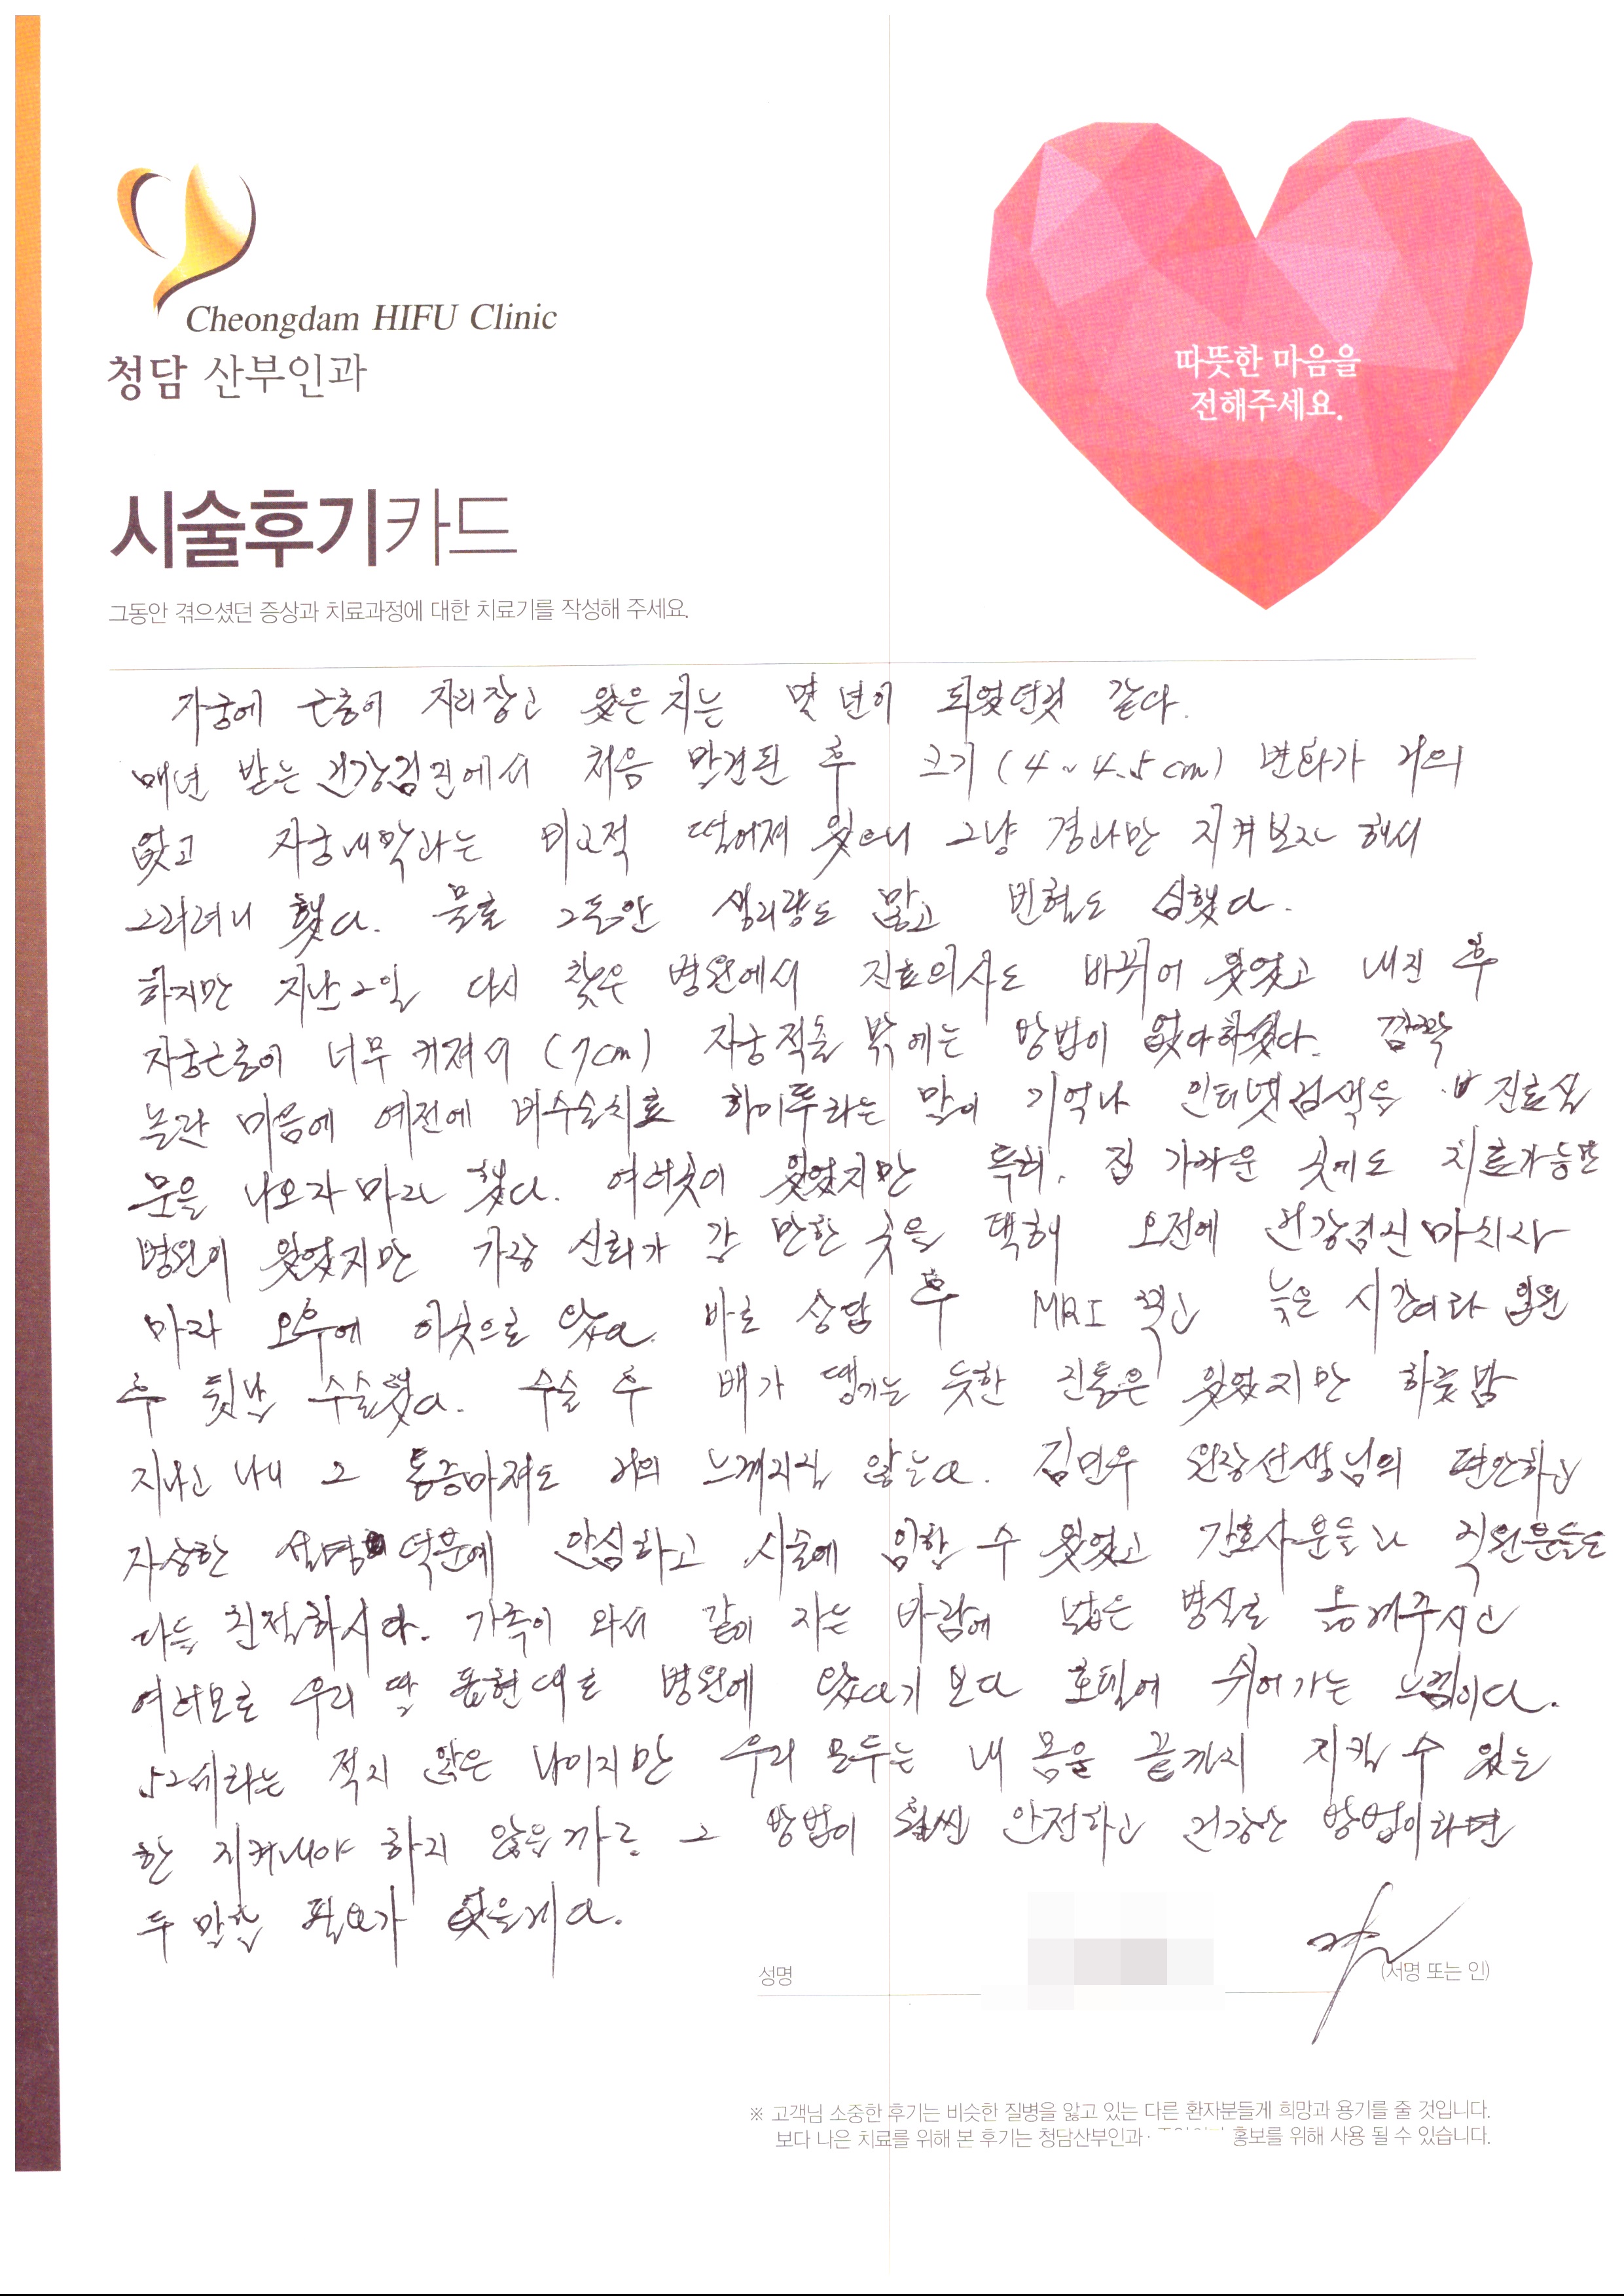 Cheongdam HIFU Clinic
청담 산부인과
따뜻한 마음을
전해주세요.
시술후기카드
그동안 겪으셨던 증상과 치료과정에 대한 치료기를 작성해 주세요.
자궁에 근종이 자리잡고 있은지는 몇 년이 되었던것 같다.
매년 받는 건강검진에서 처음 발견된 후 크기 (4~4.5cm) 변화가 거의
없고 자궁내막과는 비교적 떨어져 있으니 그냥 경과만 지켜보자 해서
그러려니 했다. 물론 그동안 생리량도 많고 빈혈도 심했다.
하지만 지난 2일 다시 찾은 병원에서 진료의사도 바뀌어 있었고 내진 후
자궁근종이 너무 커져서 (7cm) 자궁적출 밖에는 방법이 없다하셨다. 깜짝
놀란 마음에 예전에 비수술치료 하이푸라는 말이 기억나 인터넷검색을 진료실
문을 나오자 마자 했다. 여러곳이 있었지만 특히, 집 가까운 곳에도 치료가능한
병원이 있었지만 가장 신뢰가 갈 만한 곳을 택해 오전에 건강검진 마치자
마자 오후에 이곳으로 왔다. 바로 상담 후 MRI 찍고 늦은 시간이라 입원
후 뒷날 수술했다. 수술 후 배가 땡기는 듯한 진통은 있었지만 하룻밤
지나고 나니 그 통증마져도 거의 느껴지질 않는다. 김민우 원장선생님의 편안하고
자상한 설명 덕분에 안심하고 시술에 임할 수 있었고 간호사분들과 직원분들도
다들 친절하시다. 가족이 와서 같이 자는 바람에 넓은 병실로 옮겨주시고
여러모로 우리 딸 표현대로 병원에 왔다기 보다 호텔에 쉬어가는 느낌이다.
52세라는 적지 않은 나이지만 우리 모두는 내 몸을 끝까지 지킬 수 있는
한 지켜내야 하지 않을까? 그 방법이 훨씬 안전하고 건강한 방법이라면
두 말할 필요가 없을게다.
성명
(서명 또는 인)
※ 고객님 소중한 후기는 비슷한 질병을 앓고 있는 다른 환자분들게 희망과 용기를 줄 것입니다.
보다 나은 치료를 위해 본 후기는 청담산부인과 홍보를 위해 사용 될 수 있습니다.